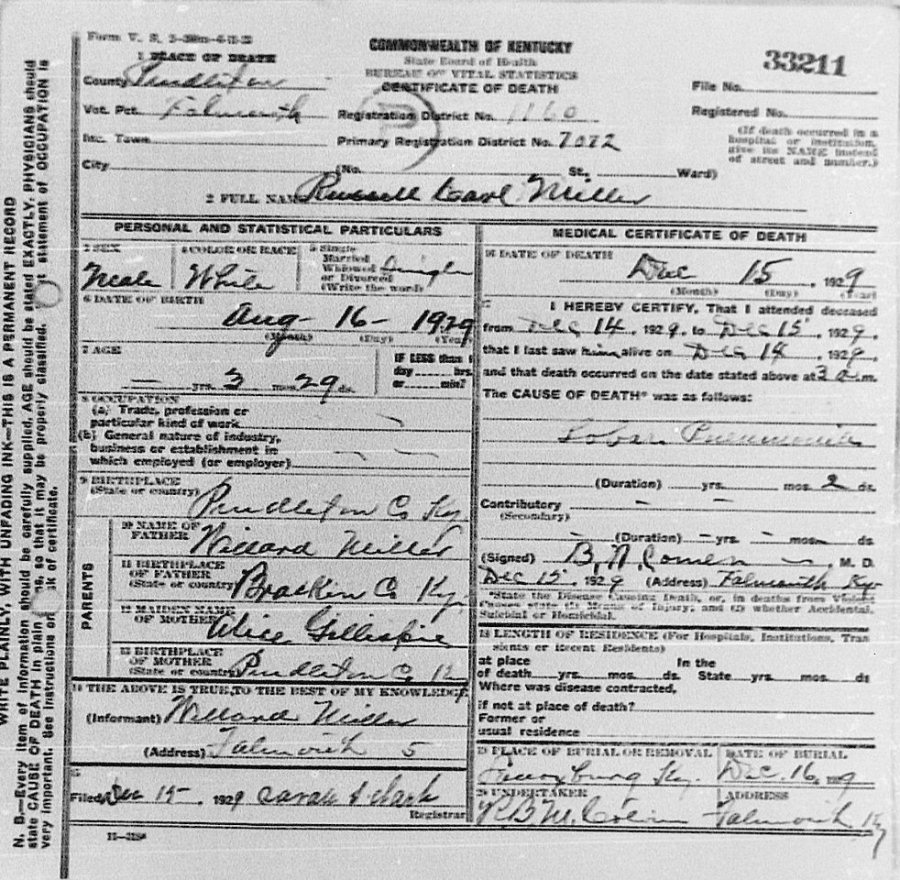 Form V. S.
COMMONWEALTH OF KENTUCKY
State Board of Health
BUREAU OF VITAL STATISTICS
CERTIFICATE OF DEATH
33211
1 PLACE OF DEATH
County Pendleton
Vot. Pct. Falmouth
Inc. Town
City
Registration District No. 1160
Primary Registration District No. 7072
(No. St., Ward)
File No.
Registered No.
(If death occurred in a
hospital or institution,
give its NAME instead
of street and number.)
2 FULL NAME Russell Earl Miller
PERSONAL AND STATISTICAL PARTICULARS
3 SEX
Male
4 COLOR OR RACE
White
5 Single
Married
Widowed
or Divorced
(Write the word)
Single
6 DATE OF BIRTH
Aug - 16 - 1929
(Month) (Day) (Year)
7 AGE
— yrs. 3 mos. 29 ds.
IF LESS than 1
day hrs.
or min?
8 OCCUPATION
(a) Trade, profession or
particular kind of work
(b) General nature of industry,
business or establishment in
which employed (or employer)
9 BIRTHPLACE
(State or country) Pendleton Co Ky
PARENTS
10 NAME OF
FATHER Willard Miller
11 BIRTHPLACE
OF FATHER
(State or country) Bracken Co Ky.
12 MAIDEN NAME
OF MOTHER Alice Gillispie
13 BIRTHPLACE
OF MOTHER
(State or country) Pendleton Co Ky
14 THE ABOVE IS TRUE TO THE BEST OF MY KNOWLEDGE
(Informant) Willard Miller
(Address) Falmouth 5
15
Filed Dec 15 - 1929 Sarah Clark
Registrar
MEDICAL CERTIFICATE OF DEATH
16 DATE OF DEATH
Dec 15, 1929
(Month) (Day) (Year)
17 I HEREBY CERTIFY, That I attended deceased
from Dec 14, 1929, to Dec 15, 1929,
that I last saw him alive on Dec 14, 1929,
and that death occurred on the date stated above at 3 a. m.
The CAUSE OF DEATH* was as follows:
Lobar Pneumonia
(Duration) yrs. mos. 2 ds.
Contributory — —
(Secondary)
(Duration) — yrs. — mos. — ds.
(Signed) B. N. M. D.
Dec 15, 1929 (Address) Falmouth Ky.
*State the Disease Causing Death, or, in deaths from Violent
Causes state (1) Means of Injury; and (2) whether Accidental,
Suicidal or Homicidal.
18 LENGTH OF RESIDENCE (For Hospitals, Institutions, Tran
sients or Recent Residents)
at place In the
of death yrs. mos. ds. State yrs. mos. ds
Where was disease contracted,
if not at place of death?
Former or
usual residence
19 PLACE OF BURIAL OR REMOVAL
Ky.
DATE OF BURIAL
Dec. 16, 1929
20 UNDERTAKER
ADDRESS
Falmouth Ky
WRITE PLAINLY, WITH UNFADING INK—THIS IS A PERMANENT RECORD
N. B.—Every item of information should be carefully supplied. AGE should be stated EXACTLY. PHYSICIANS should
state CAUSE OF DEATH in plain so that it may be properly classified. statement of OCCUPATION is
very important. See instructions on of certificate.